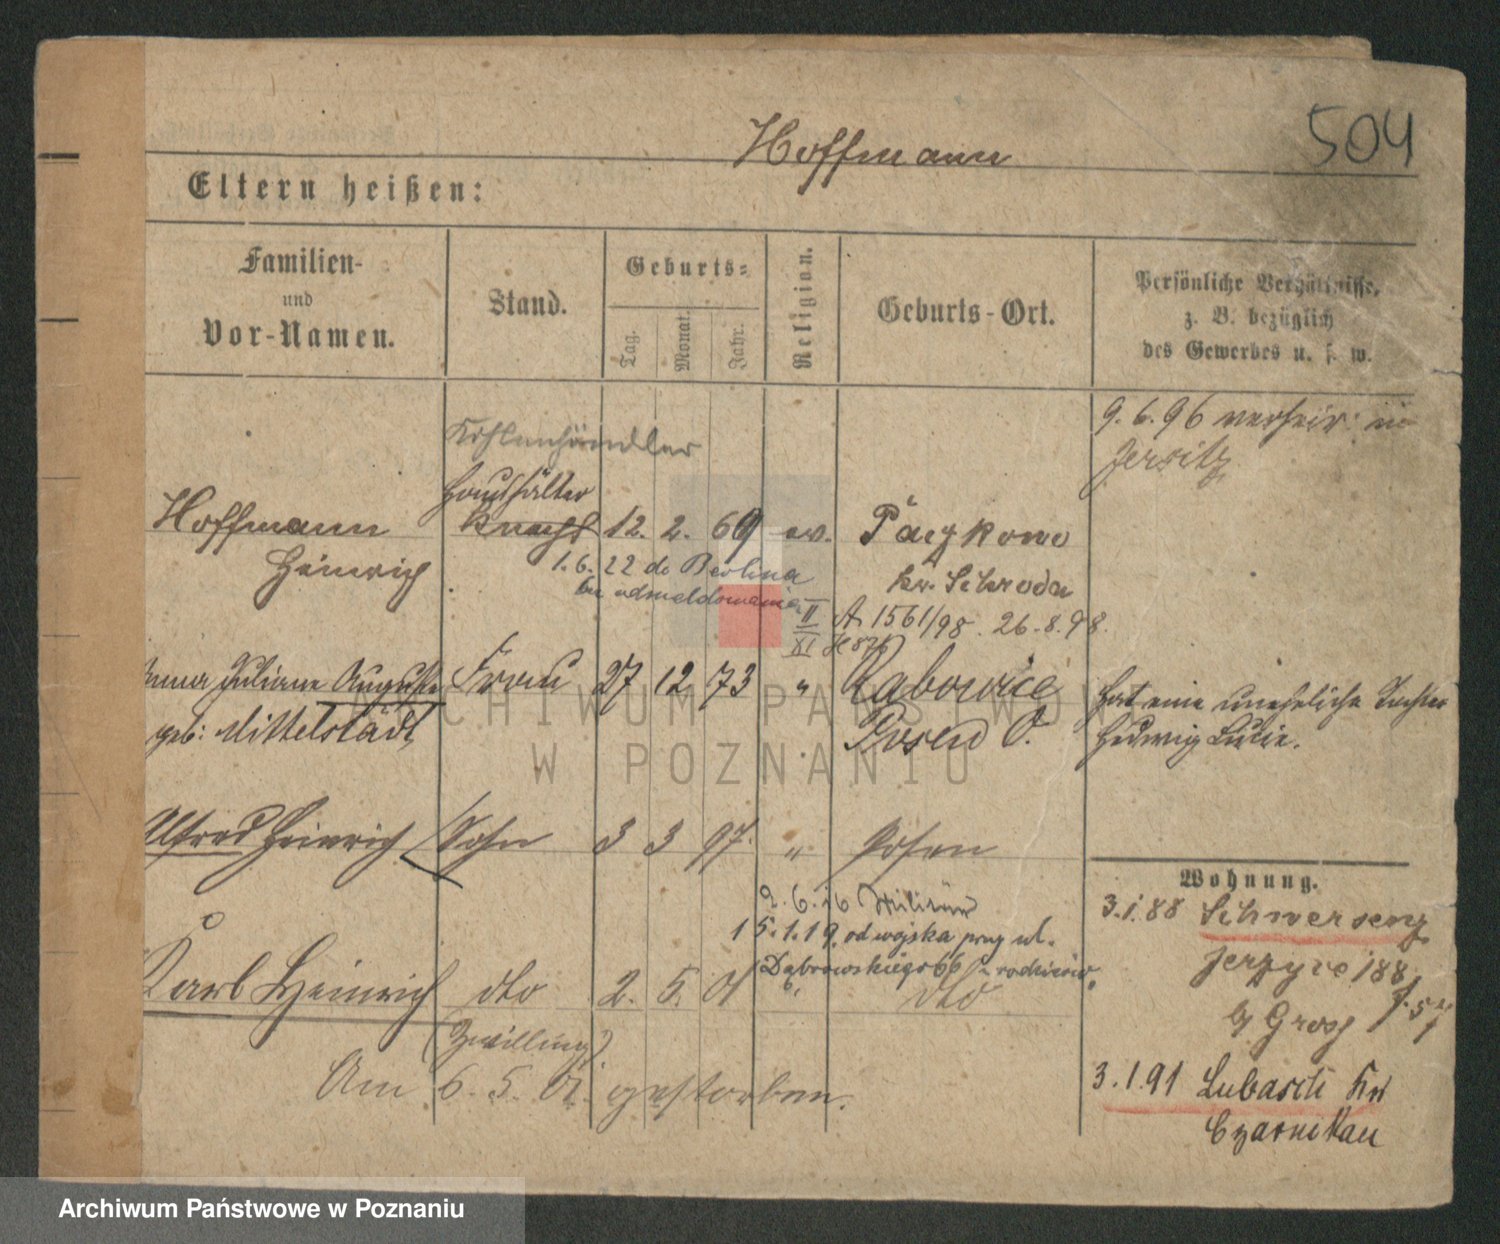 Hoffmann
504
Eltern heißen:
Familien-
und
Vor-Namen.
Stand.
Geburts=
Tag.
Monat.
Jahr.
Religion.
Geburts-Ort.
Persönliche Verhältnisse,
z. B. bezüglich
des Gewerbes u. s. w.
9.6.96 verheir. in
Jersitz
Kohlenhändler
Haushälter
Hoffmann Knecht 12. 2. 69 ev.
Heinrich
kr. Schroda
1. 6. 22 do Berlina
II A 1561/98. 26.8.98.
XI
Juliane Auguste Frau 27 12 73 " Rabowice
geb: Mittelstädt Posen O.
Hat eine uneheliche Tochter
Hedwig Lucie.
Alfred Heinrich Sohn 3 3 97. " Posen
2.6.16 Militär
15.1.19. od wojska przy ul.
Dąbrowskiego 66
Karl Heinrich dto 2. 5. 01 dto
(Zwilling)
Am 6. 5. 01. gestorben.
Wohnung.
3.1.88 Schwersenz
188
3.1.91 Lubasch Kr
Czarnikau
ARCHIWUM PAŃSTWOWE
W POZNANIU
Archiwum Państwowe w Poznaniu